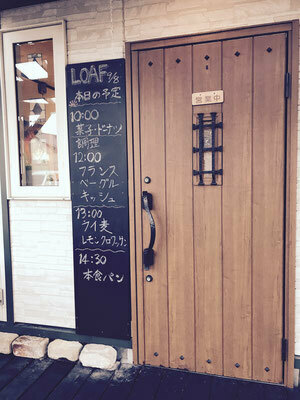 LOAF 9/8
本日の予定
10:00
菓子・ドーナツ
調理
12:00
フランス
ベーグル
キッシュ
13:00
ライ麦
レモンクロワッサン
14:30
本食パン
営業中